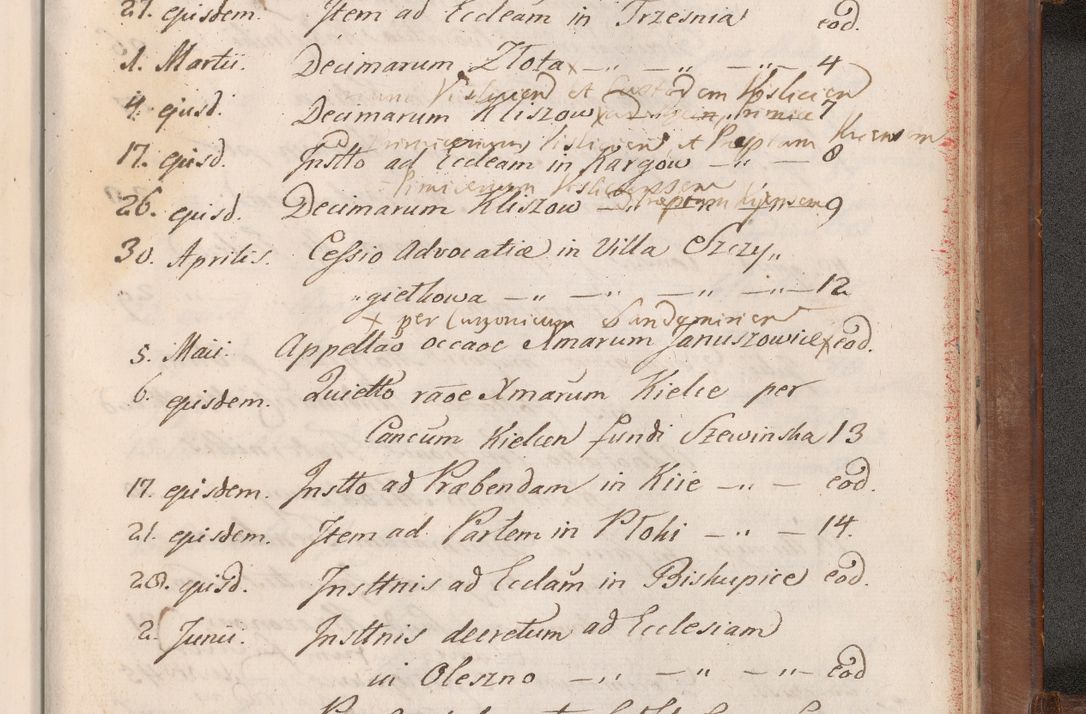 27. ejusdem. Item ad Eccleam in Trzesnia eod.
1. Martii. Decimarum Złota x — „ — „ — „ — 4
Vislicien et Custodem Vislicien
4. ejusd. Decimarum Kliszow x 7
Vislicien et Praeptam Kicensem
17. ejusd. Instto ad Eccleam in Kargow — „ — 8
Primicerium Vislicensem
26. ejusd. Decimarum Kliszow Praeptum Kijensem 9
30. Aprilis. Cessio Advocatiæ in Villa Szczy„
„giełkowa — „ — „ — „ — „ — 12
x per Canonicum Sandymirien
5. Maii. Appellao occaoe Xmarum Januszowice x eod.
6. ejusdem. Quietto raoe Xmarum Kielce per
Cancum Kielcen fundi Szewinska 13
17. ejusdem. Instto ad Præbendam in Kiie — „ — eod.
21. ejusdem. Item ad Partem in Płoki — „ — 14.
28. ejusd. Insttnis ad Ecclam in Biskupice eod.
2. Junii. Insttnis decretum ad Ecclesiam
in Oleszno — „ — „ — „ — eod